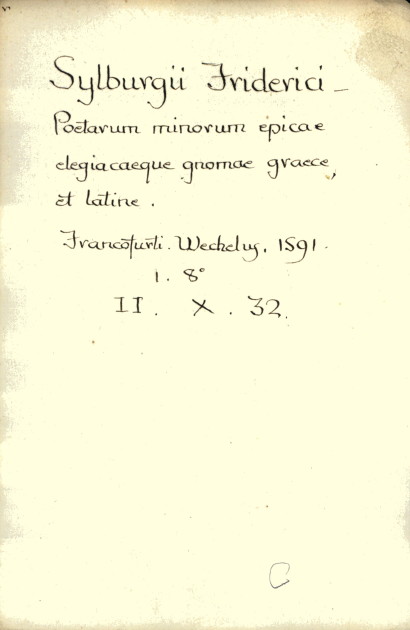 Sylburgii Friderici –
Poëtarum minorum epicae
elegiacaeque gnomae graece,
et latine .
Francofurti . Weckelus , 1591 .
1 . 8°
II . X . 32 .
C